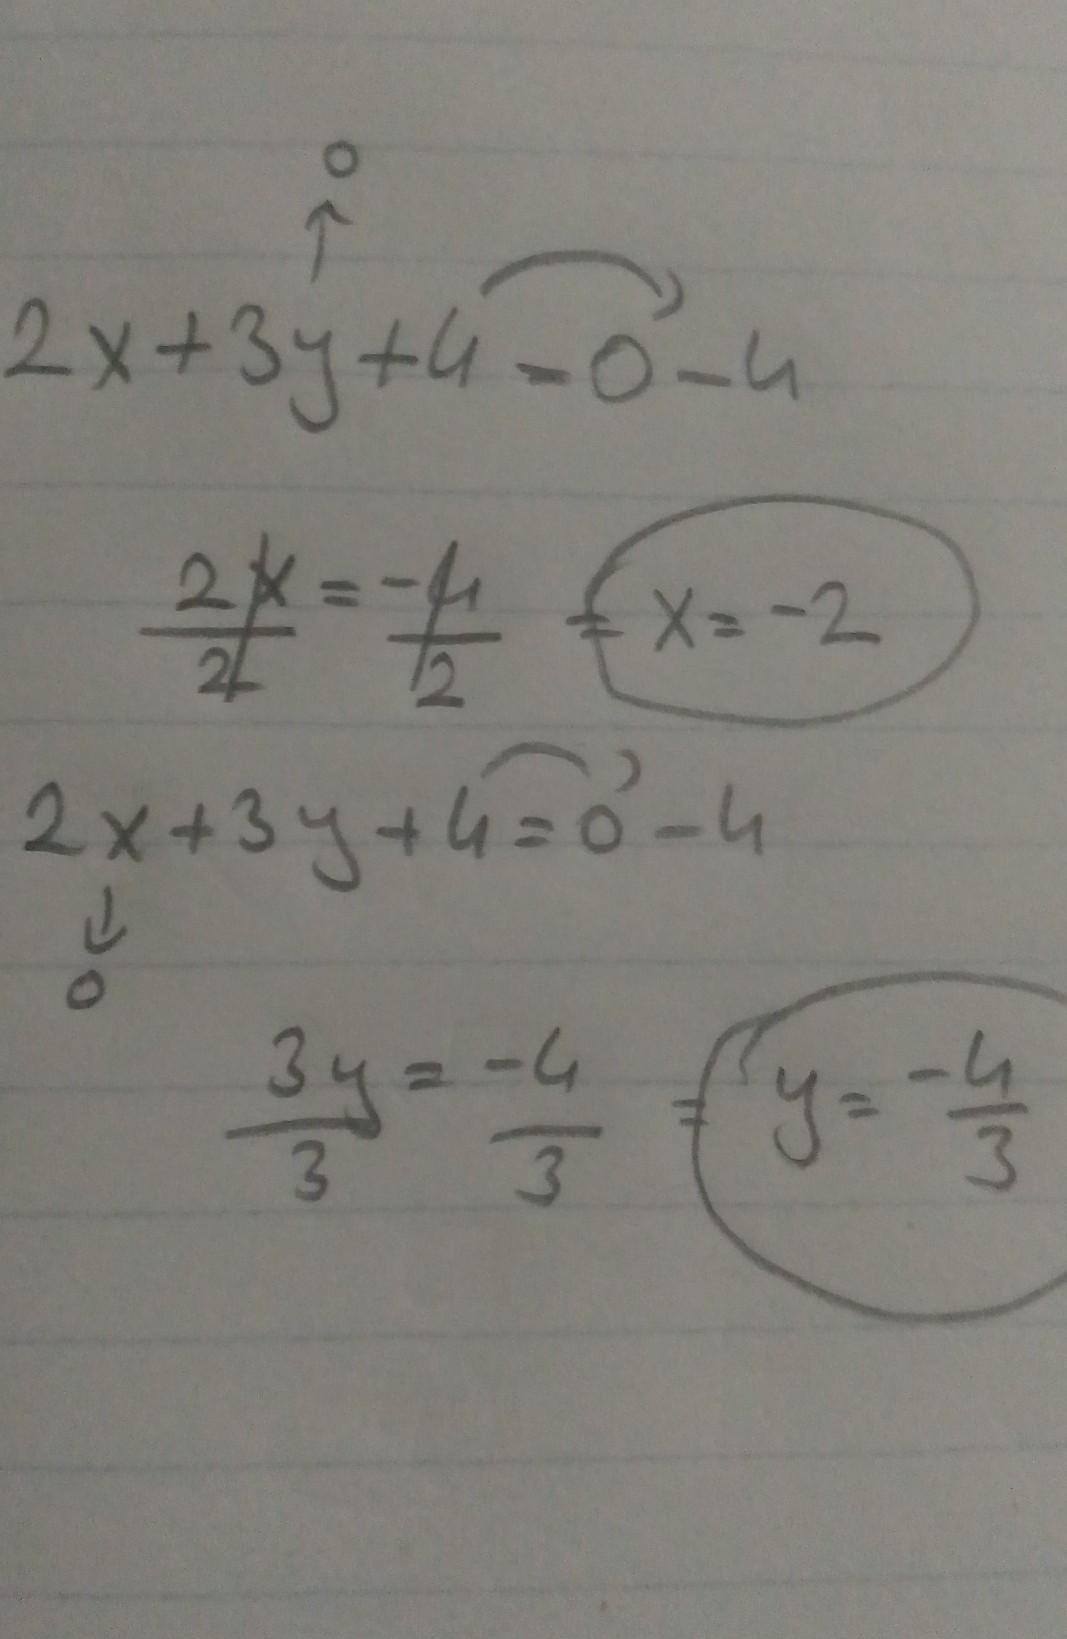 0
↑
2x+3y+4-0-4
2x/2 = -4/2 = x=-2
2x+3y+4=0-4
↓
0
3y/3 = -4/3 = y= -4/3